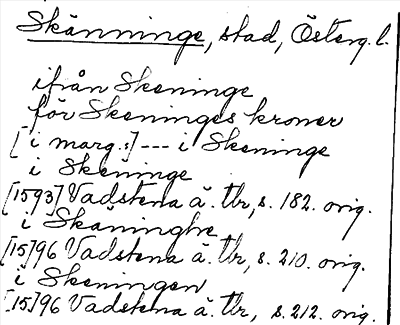 Skänninge, stad, Österg. l.
ifrån Skeninge
för Skeninges kroner
[i marg.:] --- i Skeninge
i Skeninge
[1593] Vadstena ä. tlr, s. 182. orig.
i Skäninghe
[15]96 Vadstena ä. tlr, s. 210. orig.
i Skeningen
[15]96 Vadstena ä. tlr, s. 212. orig.